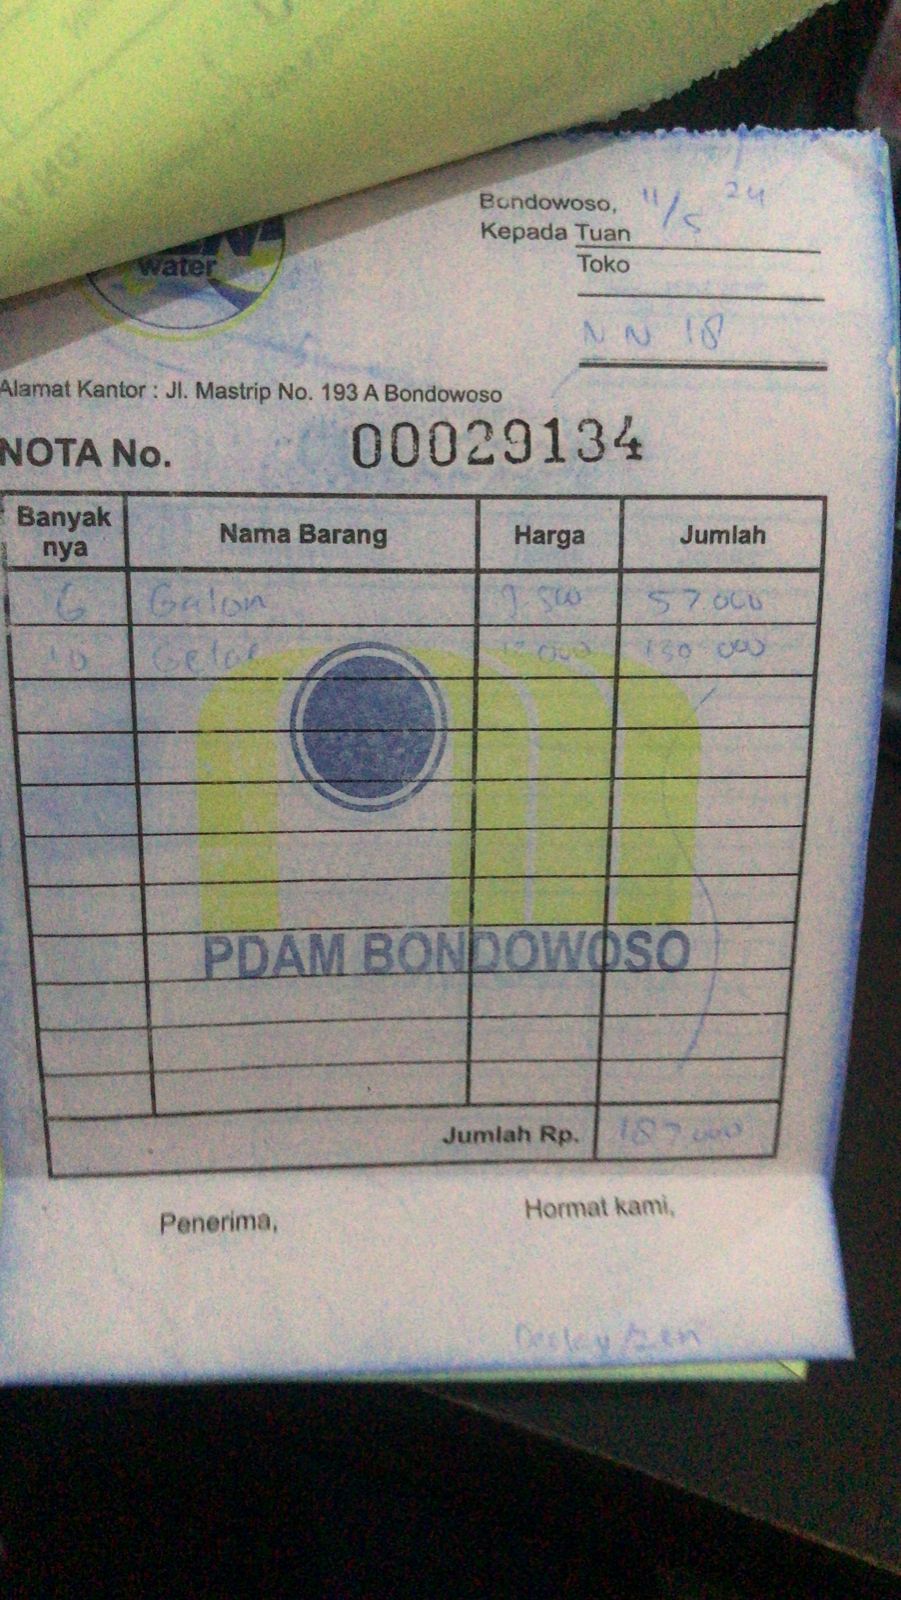 water
Bondowoso, 11/5 24
Kepada Tuan
Toko
NN 18
Alamat Kantor : Jl. Mastrip No. 193 A Bondowoso
NOTA No. 00029134
Banyak nya Nama Barang Harga Jumlah
6 Galon 9 500 57 000
10 Gelas 13 000 130 000
PDAM BONDOWOSO
Jumlah Rp. 187 000
Penerima, Hormat kami,